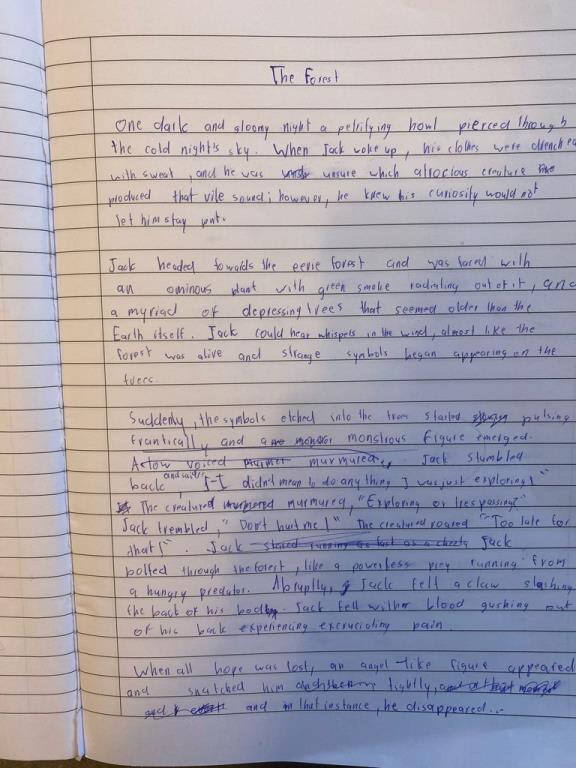 The Forest
One dark and gloomy night a petrifying howl pierced through
the cold night's sky. When Jack woke up, his clothes were drenched
with sweat, and he was unsure which atrocious creature
produced that vile sound; however, he knew his curiosity would not
let him stay put.
Jack headed towards the eerie forest and was faced with
an ominous plant with green smoke radiating out of it, and
a myriad of depressing trees that seemed older than the
Earth itself. Jack could hear whispers in the wind, almost like the
forest was alive and strange symbols began appearing on the
trees.
Suddenly, the symbols etched into the trees started pulsing
frantically and a monstrous figure emerged.
A low voiced murmured, Jack stumbled
back and said, "I didn't mean to do anything I was just exploring!"
The creatured murmured, "Exploring or trespassing?"
Jack trembled, "Don't hurt me!" The creatured roared "Too late for
that!". Jack
bolted through the forest, like a powerless prey running from
a hungry predator. Abruptly, Jack felt a claw slashing
the back of his body. Jack fell with blood gushing out
of his back experiencing excruciating pain.
When all hope was lost, an angel-like figure appeared
and snatched him tightly,
and in that instance, he disappeared...